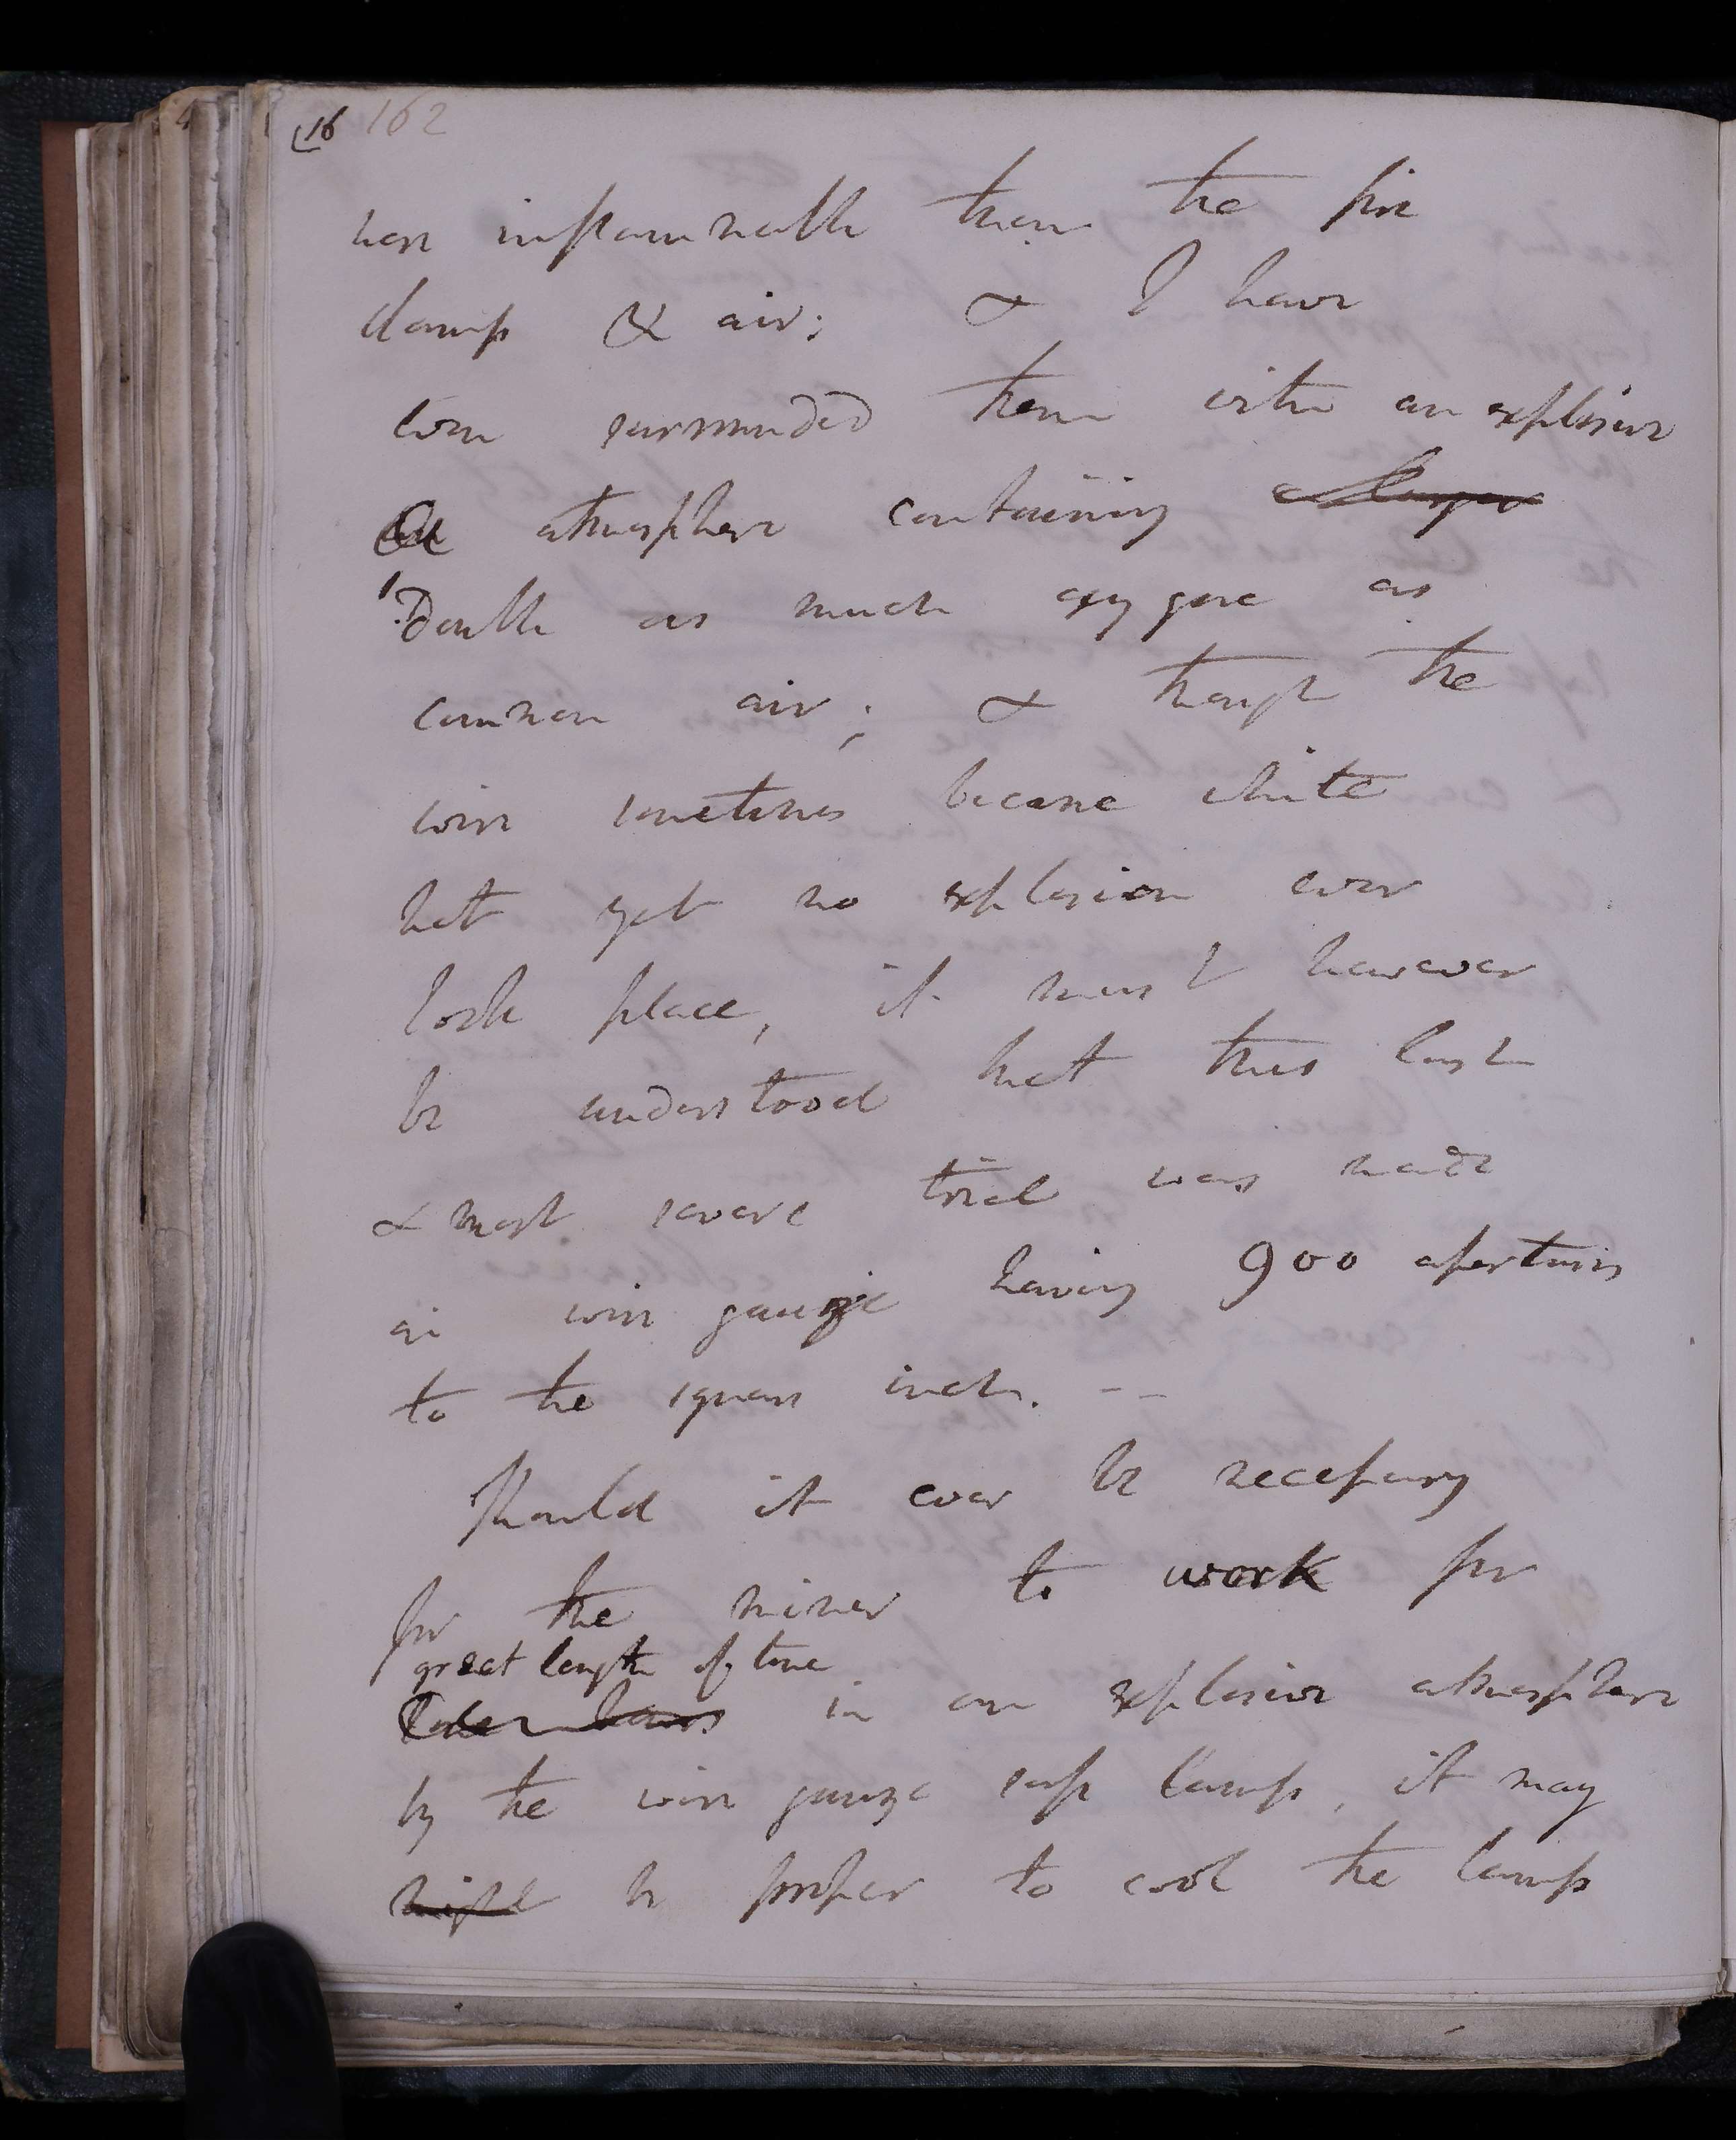 16 162
more inflammable than the fire
damp & air; & I have
even surrounded them with an explosive
atmosphere containing
Double as much oxygene as
common air; & though the
wire sometimes became white
hot yet no explosion ever
took place, it must however
be understood that this last
& most severe trial was made
in wire gauze having 900 apertures
to the square inch. --
Should it ever be necessary
for the miner to work for
great length of time
in an explosive atmosphere
by the wire gauze safe lamp, it may
might be proper to cool the lamp